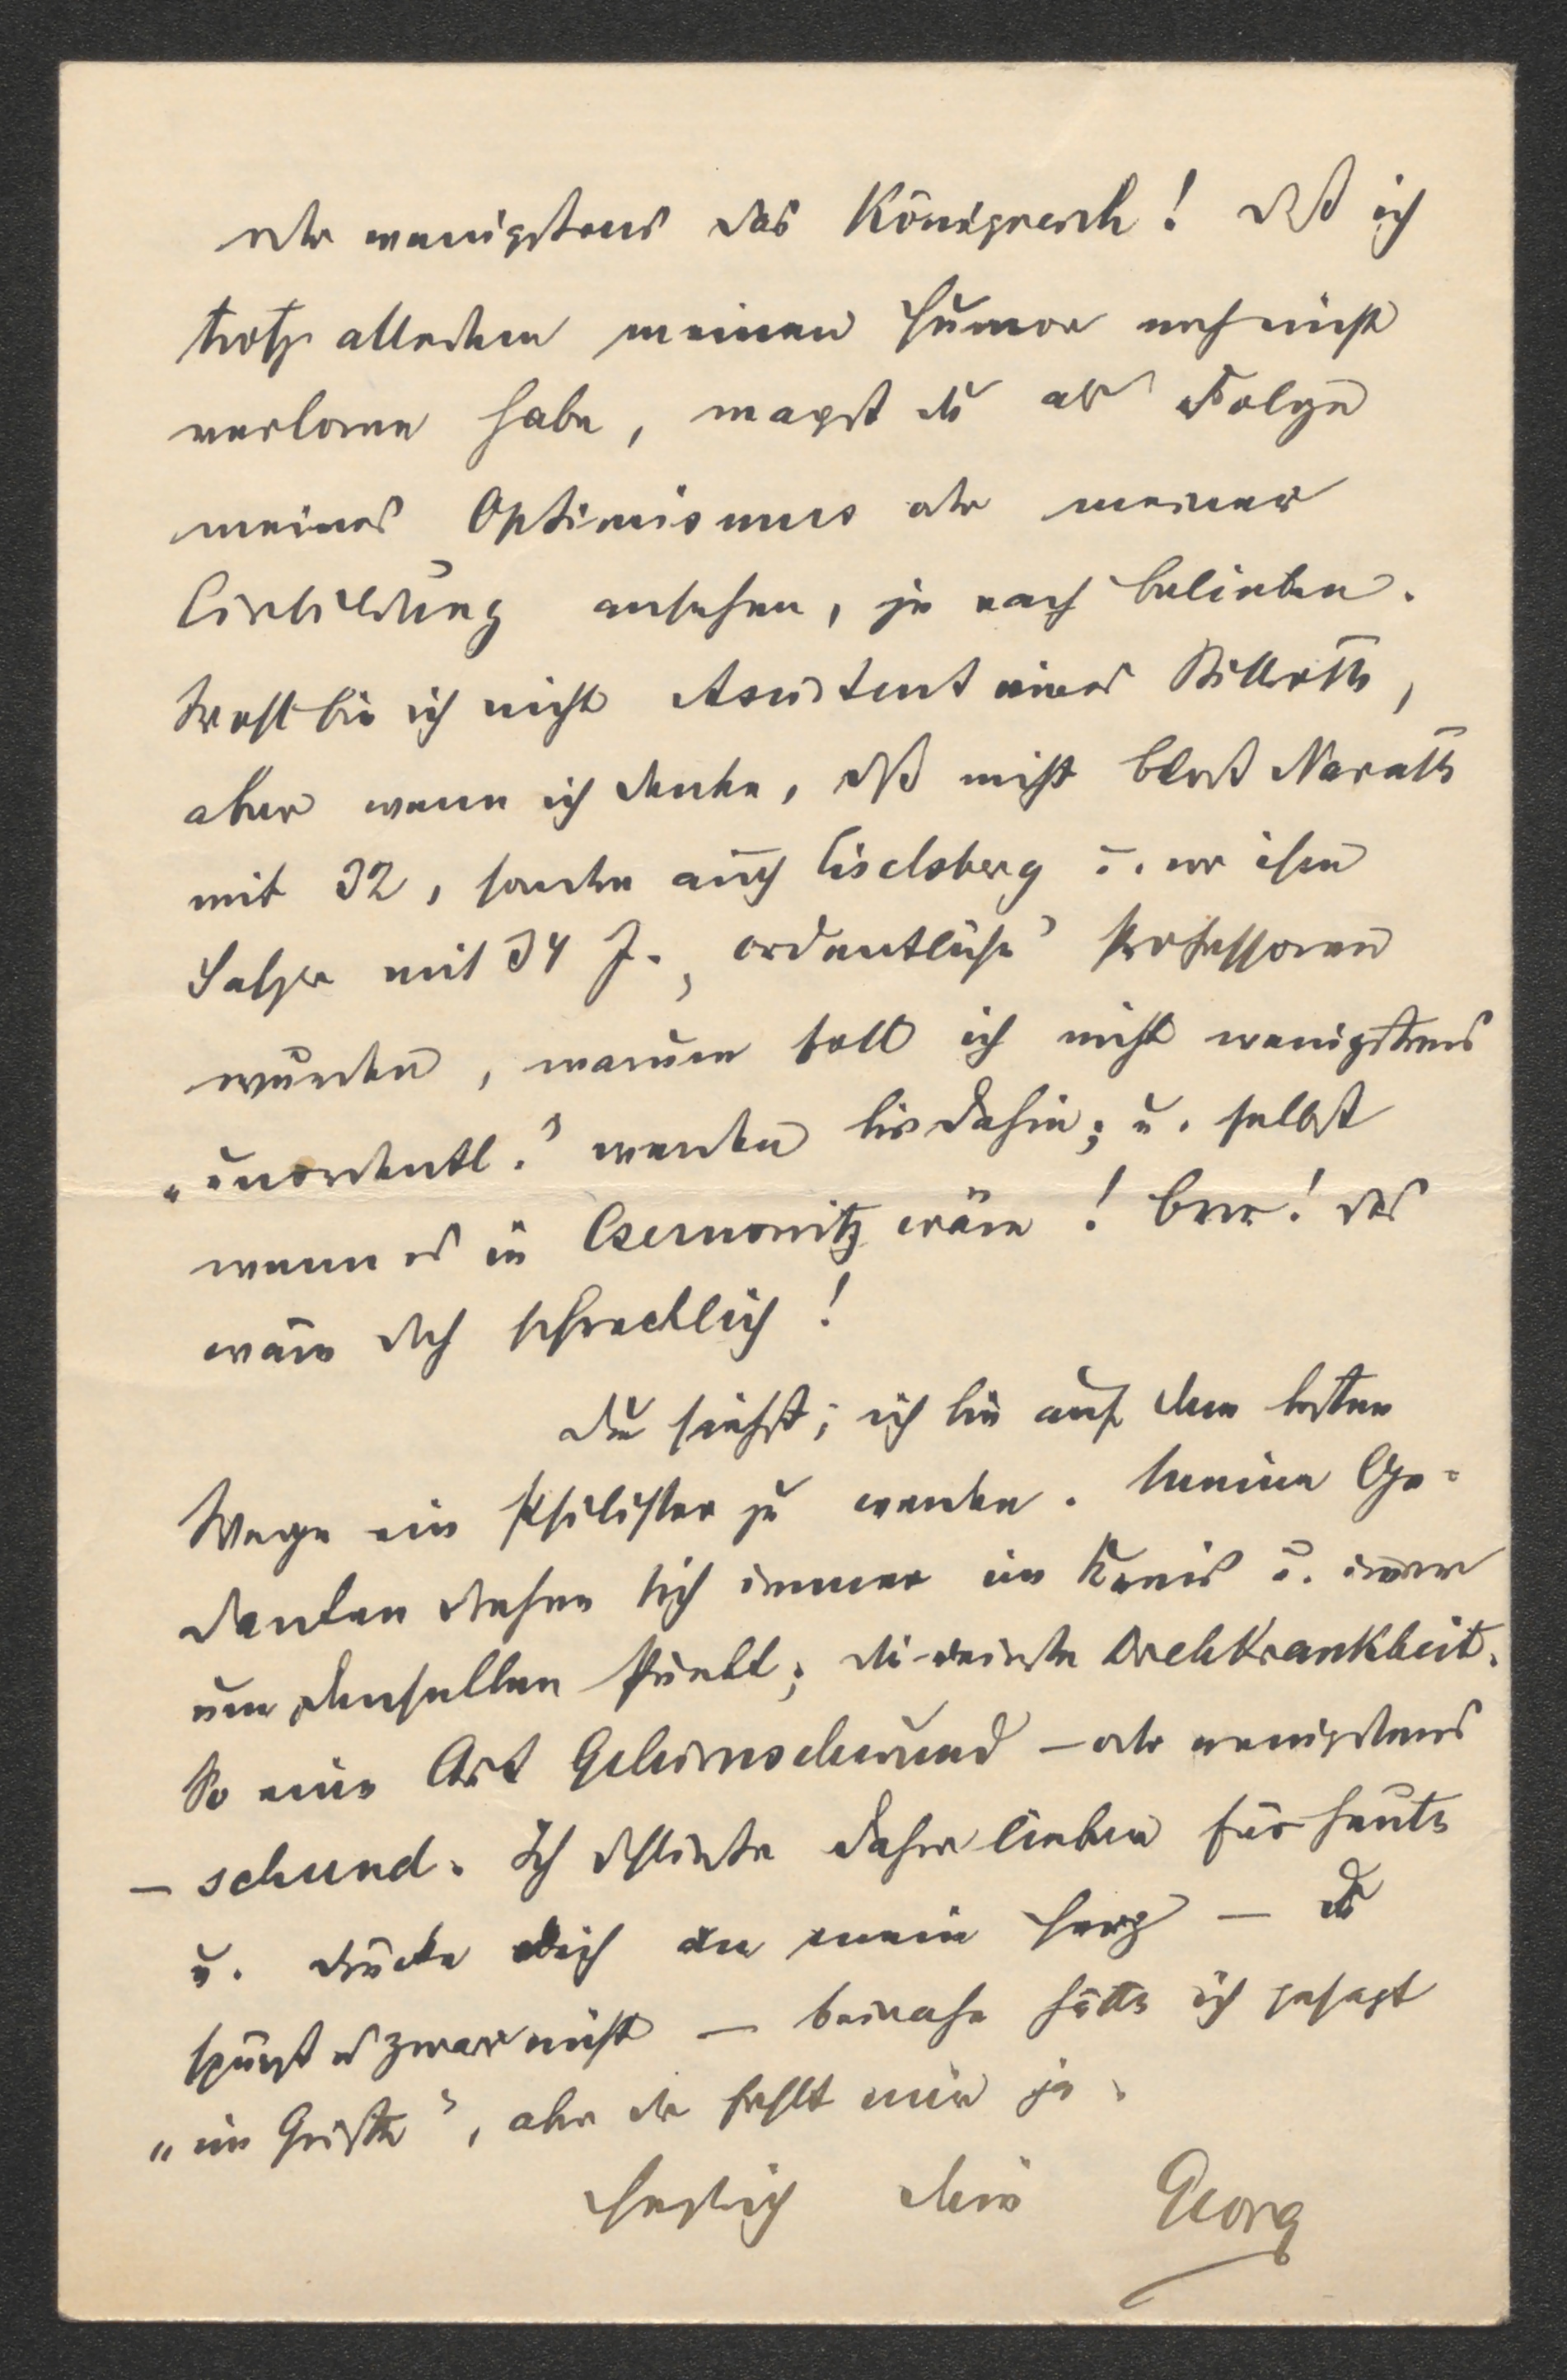 oder wenigstens das Königreich! Daß ich
trotz alledem meinen Humor noch nicht
verloren habe, magst du als Folge
meines Optimismus oder meiner
Einbildung ansehen, je nach belieben.
Wohl bin ich nicht Assistent eines Billroth,
aber wenn ich denke, daß nicht bloß Narath
mit 32, sondern auch Eiselsberg u. vor ihm
Salzer mit 34 J. „ordentliche" Professoren
wurden, warum soll ich nicht wenigstens
„unordentl." werden bis dahin; u. selbst
wenn es in Czernowitz wäre! Brr! das
wäre doch schrecklich!
Du siehst; ich bin auf dem besten
Wege ein Philister zu werden. Meine Ge-
danken drehen sich immer im Kreis u. immer
um denselben Punkt; die reinste Drehkrankheit.
So eine Art Gehirnschwund – oder wenigstens
– schund. Ich schließe daher lieber für heute
u. drücke dich an mein Herz – du
spürst es zwar nicht – beinahe hätte ich gesagt
„im Geiste", aber der fehlt mir ja.
Herzlich dein Georg